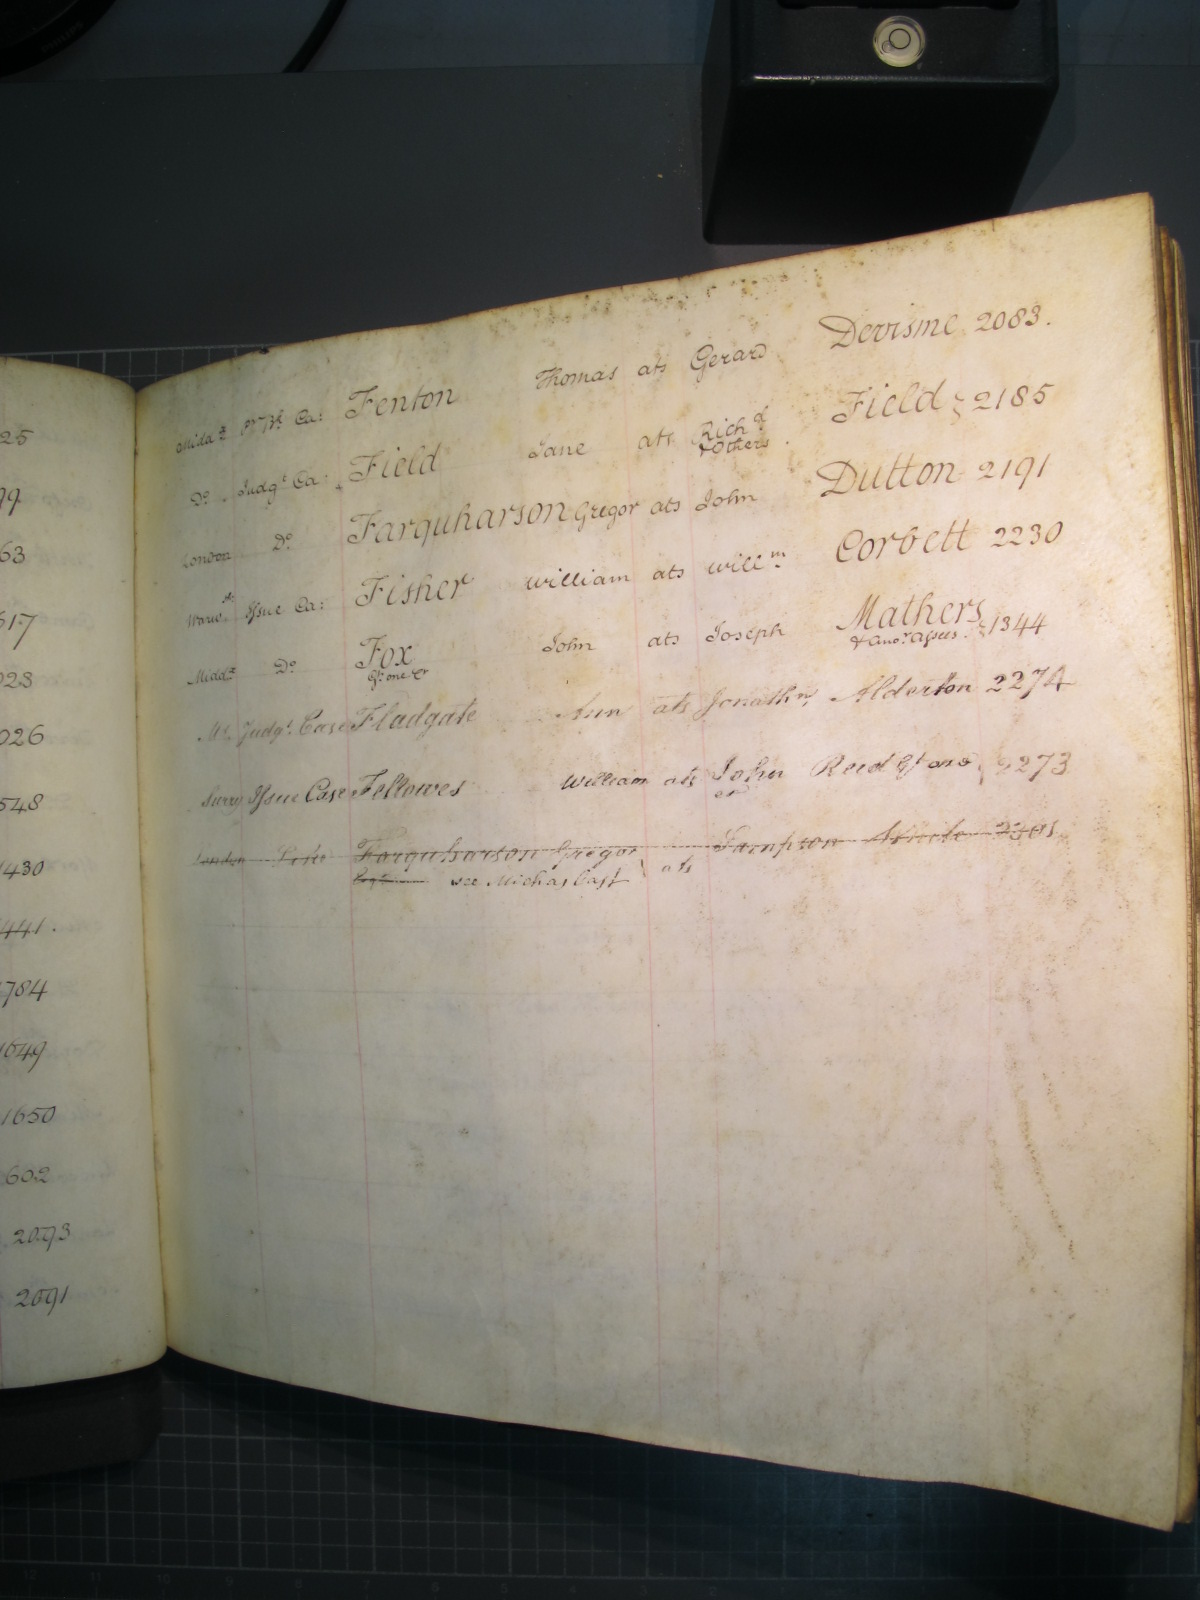 25
99
63
517
023
026
548
1430
441.
784
1649
1650
602
2093
2091
Midd.x Ca: Fenton Thomas ats Gerard Devisme 2083.
Do. Judg.t Ca: Field Jane ats Rich.d Field 2185
& Others
London Do. Farquharson Gregor ats John Dutton 2191
Warw. Issue Ca: Fisher William ats Will.m Corbett 2230
Midd.x Do. Fox John ats Joseph Mathers 1344
Gt. one &c & Ano.r Assees.
Judg.t Case Fladgate Ann ats Jonath.n Alderton 2274
Surry Issue Case Fellowes William ats John Reed Gt one 2273
&c
London Farquharson Gregor ats Sampson 2301
see Michas last